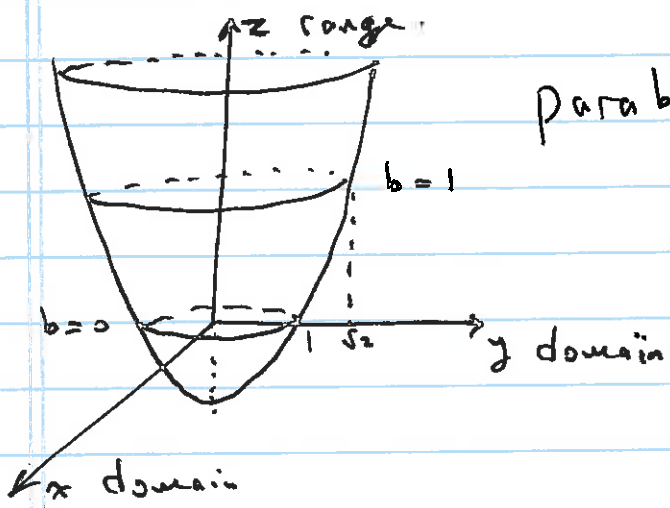 z range
parab
b = 1
b = 0
1 √2
y domain
x domain